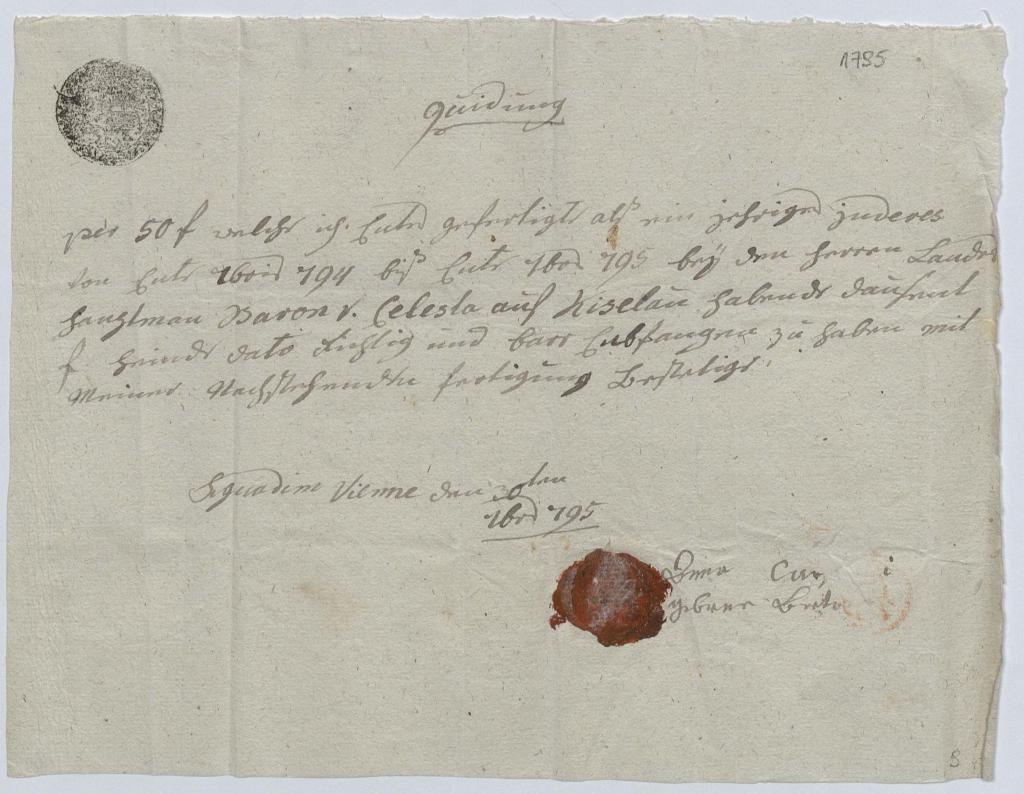 1795
quidung
per 50 f welche ich Ents gefertigte alß ein jehriges jnderes
von Ents 9bris 794 biß Ents 9bris 795 bey den Herren Landes
hauptman Baron v. Celesta auf Kiselau habende dausent
f heinde dato richtig und barr Enbfangen zu haben mit
Meiner Nachstehenden fertigung Bestetige
Vienne den 30ten
9bris 795
Car i
geborne